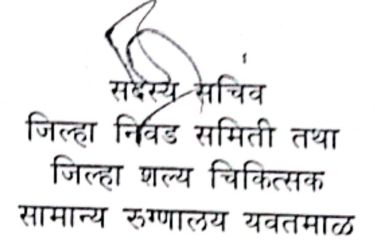 सदस्य सचिव
जिल्हा निवड समिती तथा
जिल्हा शल्य चिकित्सक
सामान्य रुग्णालय यवतमाळ